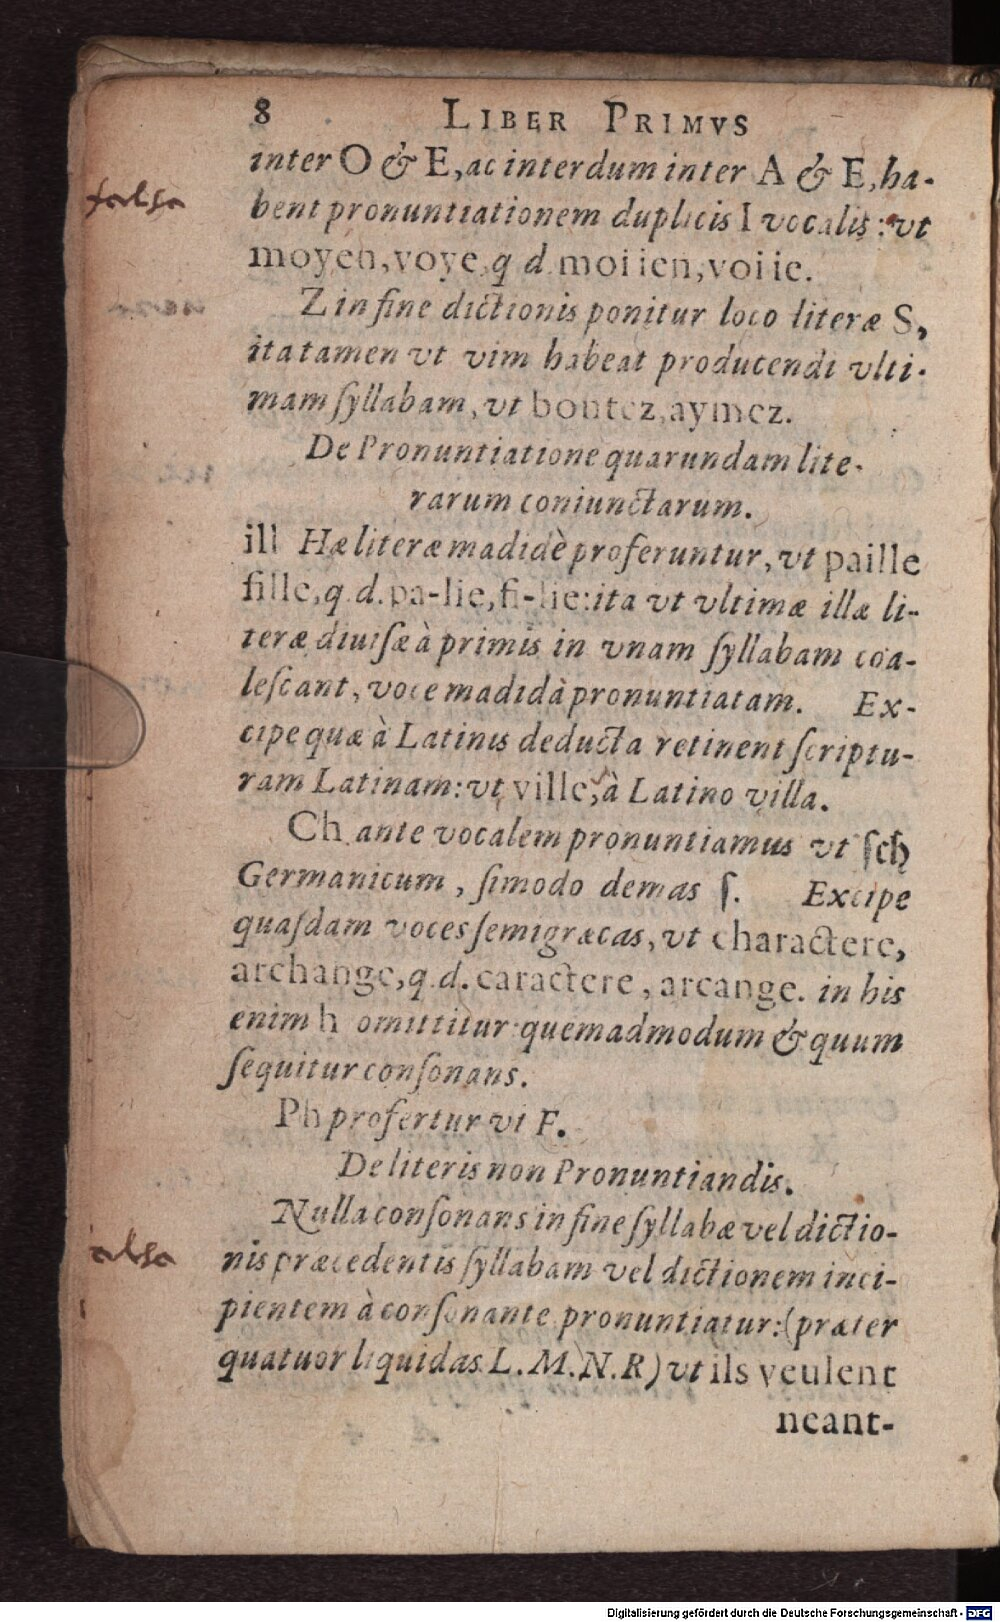 8 LIBER PRIMVS
inter O & E, ac interdum inter A & E, ha-
falsa
bent pronuntiationem duplicis I vocalis: vt
moyen, voye, q d. moiien, voiie.
Z in fine dictionis ponitur loco literæ S,
ita tamen vt vim habeat producendi vlti-
mam ſyllabam, vt bontez, aymez.
De Pronuntiatione quarundam lite-
rarum coniunctarum.
ill Hæ literæ madidè proferuntur, vt paille
fille, q. d. pa-lie, fi-lie: ita vt vltimæ illæ li-
teræ diuiſæ à primis in vnam ſyllabam coa-
leſcant, voce madidà pronuntiatam. Ex-
cipe quæ à Latinis deducta retinent ſcriptu-
ram Latinam: vt ville, à Latino villa.
Ch ante vocalem pronuntiamus vt ſch
Germanicum, ſi modo demas ſ. Excipe
quaſdam voces ſemigræcas, vt charactere,
archange, q. d. caractere, arcange. in his
enim h omittitur quemadmodum & quum
ſequitur conſonans.
Ph profertur vt F.
De literis non Pronuntiandis.
Nulla conſonans in fine ſyllabæ vel dictio-
alsa
nis præcedentis ſyllabam vel dictionem inci-
pientem à conſonante pronuntiatur: (præter
quatuor liquidas L. M. N. R) vt ils veulent
neant-
Digitalisierung gefördert durch die Deutsche Forschungsgemeinschaft - DFG